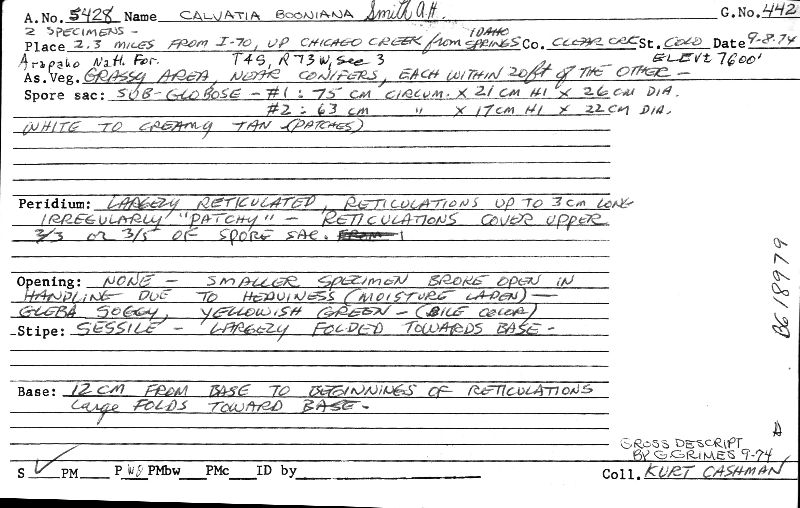 A.No. 5428 Name CALVATIA BOONIANA Smith A.H. G.No. 442
2 SPECIMENS -
Place 2.3 MILES FROM I-70, UP CHICAGO CREEK from IDAHO SPRINGS Co. CLEAR CRE St. COLO Date 9-8-74
Arapaho Natl. For. T4S, R73W, Sec 3 ELEVt 7600'
As. Veg. GRASSY AREA, NEAR CONIFERS, EACH WITHIN 20ft of THE OTHER -
Spore sac: SUB-GLOBOSE - #1: 75 CM CIRCUM. X 21 CM HI X 26 CM DIA.
#2: 63 CM " X 17 CM HI X 22 CM DIA.
WHITE TO CREAMY TAN (PATCHES)
Peridium: LARGELY RETICULATED, RETICULATIONS UP TO 3 cm LONG
IRREGULARLY "PATCHY" - RETICULATIONS COVER UPPER
2/3 or 3/5 OF SPORE SAC.
Opening: NONE - SMALLER SPECIMEN BROKE OPEN IN
HANDLING DUE TO HEAVINESS (MOISTURE LADEN) -
GLEBA SOGGY, YELLOWISH GREEN - (BILE COLOR)
Stipe: SESSILE - LARGELY FOLDED TOWARDS BASE -
Base: 12 CM FROM BASE TO BEGINNINGS OF RETICULATIONS
Large FOLDS TOWARD BASE -
GROSS DESCRIPT
BY G. GRIMES 9-74
S PM P PMbw PMc ID by Coll. KURT CASHMAN
BG 18979